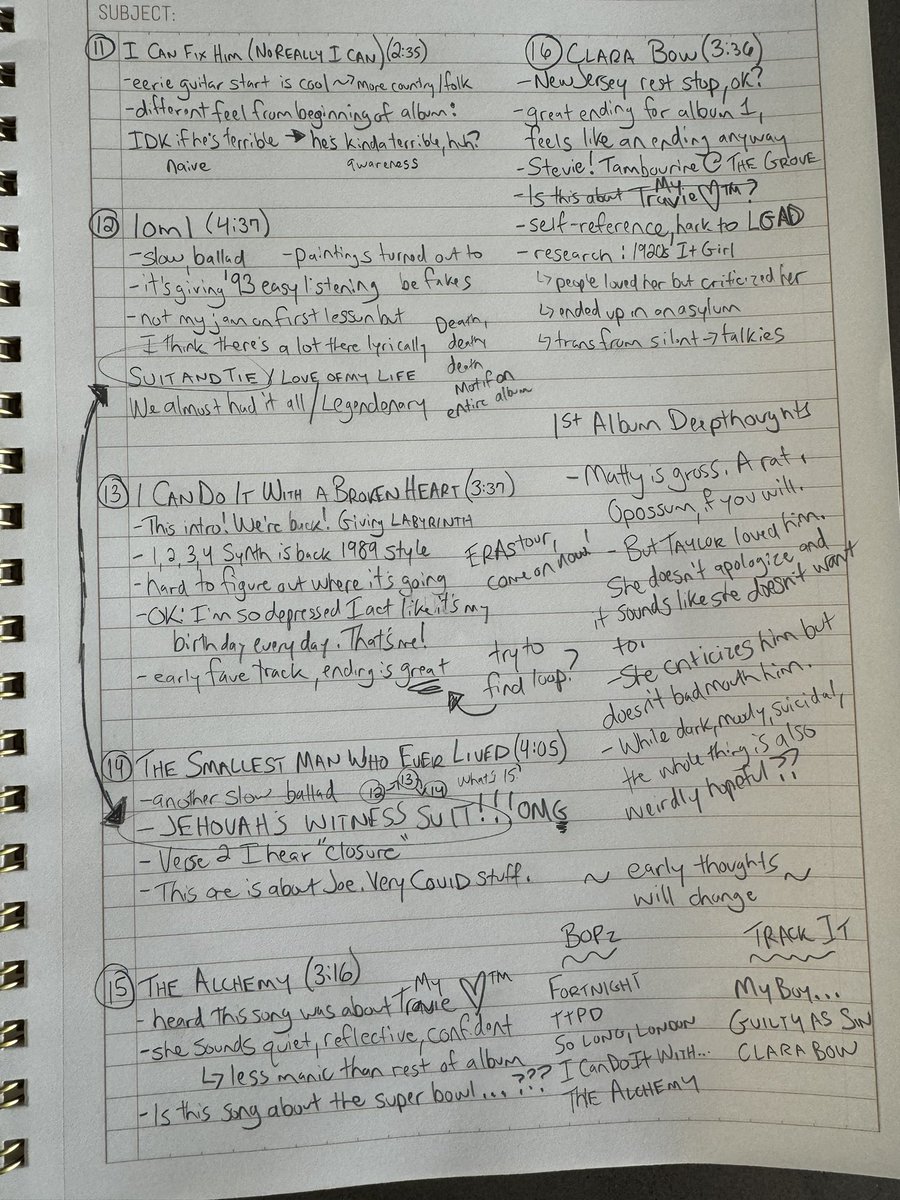 SUBJECT:
11 I CAN FIX HIM (NO REALLY I CAN) (2:35)
-eerie guitar start is cool ~> more country/folk
-different feel from beginning of album:
IDK if he's terrible → he's kinda terrible, huh?
naive awareness
12 loml (4:37)
-slow ballad -paintings turned out to be fakes
-it's giving '93 easy listening
-not my jam on first lessun but
I think there's a lot there lyrically
SUIT AND TIE / LOVE OF MY LIFE
We almost had it all / Legendonary
Death,
death
death
Motif on
entire album
13 I CAN DO IT WITH A BROKEN HEART (3:37)
-This intro! We're back! Giving LABYRINTH
-1, 2, 3, 4 Synth is back 1989 style
-hard to figure out where it's going
-OK: I'm so depressed I act like it's my
birthday every day. That's me!
-early fave track, ending is great
ERAS tour,
come on now!
try to
find loop?
14 THE SMALLEST MAN WHO EVER LIVED (4:05)
-another slow ballad 12 → 13 → 14 What's 15?
-JEHOVAH'S WITNESS SUIT!!! OMG
-Verse 2 I hear "closure"
-This one is about Joe. Very COVID stuff.
15 THE ALCHEMY (3:16)
-heard this song was about My Travie ♡™
-she sounds quiet, reflective, confident
↳ less manic than rest of album
-Is this song about the super bowl...???
16 CLARA BOW (3:36)
-New Jersey rest stop, ok?
-great ending for album 1,
feels like an ending anyway
-Stevie! Tambourine @ THE GROVE
-Is this about My Travie ♡™?
-self-reference, hark to LGAD
-research: 1920s It Girl
↳ people loved her but criticized her
↳ ended up in an asylum
↳ trans from silent → talkies
1st Album Deepthoughts
-Matty is gross. A rat.
Opossum, if you will.
-But TAYLOR loved him.
She doesn't apologize and
it sounds like she doesn't want
to.
-She criticizes him but
doesn't bad mouth him.
-While dark, moody, suicidal,
the whole thing is also
weirdly hopeful??
~ early thoughts ~
will change
BOPz
FORTNIGHT
TTPD
SO LONG, LONDON
I CAN DO IT WITH...
THE ALCHEMY
TRACK IT
MY BOY...
GUILTY AS SIN
CLARA BOW